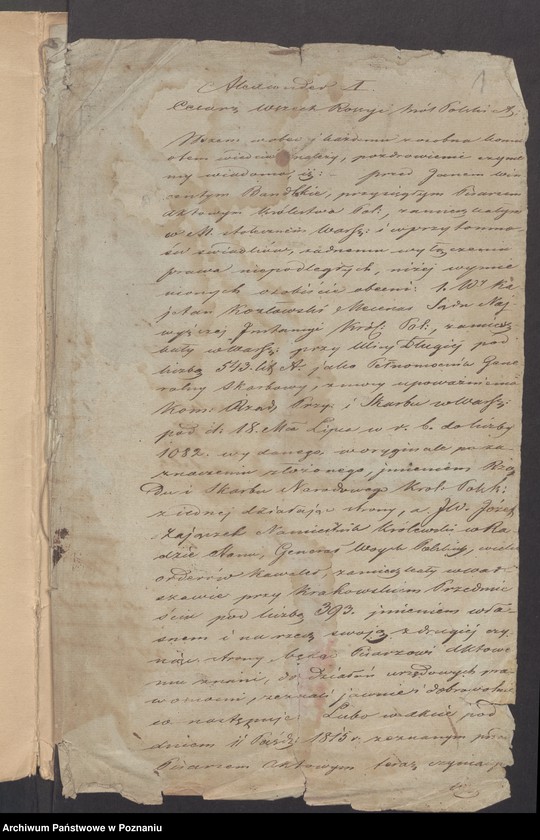 1
Alexander I.
Cesarz Wszech Rossyi, Król Polski &
Wszem wobec y każdemu z osobna komu
o tem wiedzieć należy, pozdrowienie czyni
my wiadomo, iż: - przed Janem Win
centym Bandtkie, przysięgłym Pisarzem
Aktowym Królestwa Pol:, zamieszkałym
w M. Stołecznem Warsz: i w przytomno-
ści świadków, żadnemu wyłączeniu
prawa niepodległych, niżej wymie
nionych osobiście obecni: 1. Wy Ka
jetan Kozłowski Mecenas Sądu Naj
wyższej Instancyi Król: Pol:, zamiesz
kały w Warsz: przy Ulicy Długiéj pod
liczbą 543. lit. A. jako Pełnomocnik Gene
ralny Skarbowy, z mocy upoważnienia
Kom: Rząd: Przy: i Skarbu w Warsz:
pod d. 18. Lipca w r. b. do liczby
1082. wydanego, w oryginale po za
znaczeniu złożonego, imieniem Rzą
Du i Skarbu Narodowego Król: Polsk:
z jednéj działając strony, a JW. Józef
Zajączek Namiestnik Królewski w Ra
dzie Stanu, Generał Woysk Polskich, wielu
orderów Kawaler, zamieszkały w War
szawie przy Krakowskiem Przedmie
ściu pod liczbą 393. imieniem wła-
snem i na rzecz swoją z drugiéj czy
niąc strony, będąc Pisarzowi Aktowe
mu znani, do działań urzędowych pra
womocni, zeznali jawnie i dobrowolnie
co następuje: Lubo w akcie pod
dniem 11 Paźdź: 1815 r. zeznanym przed
Pisarzem Aktowym teraz czynią